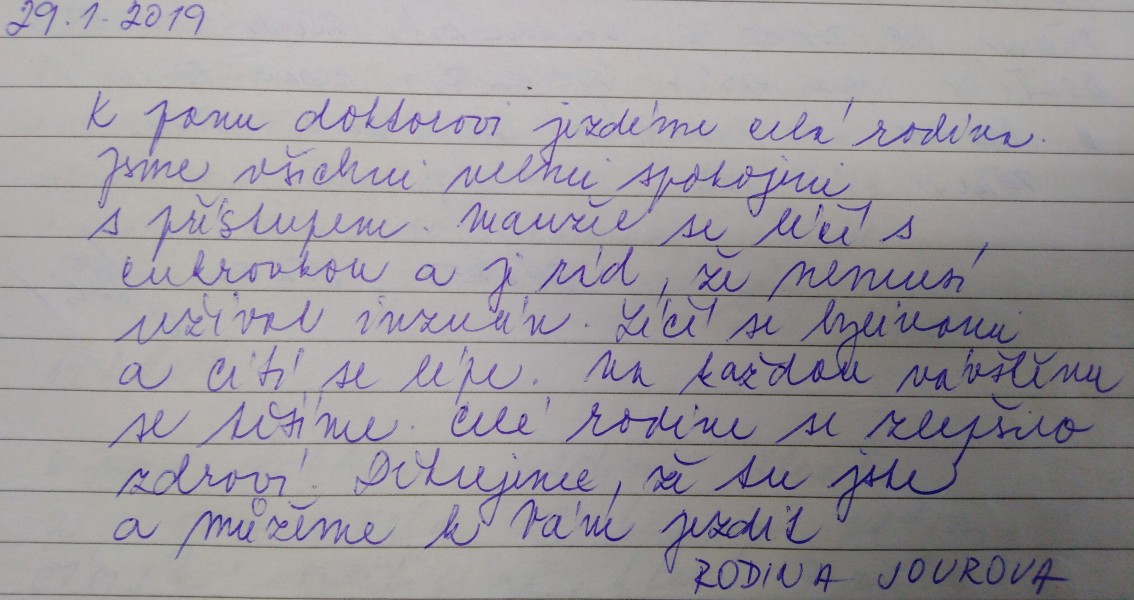 29.1.2019
K panu doktorovi jezdíme celá rodina.
Jsme všichni velmi spokojeni
s přístupem. Manžel se léčí s
cukrovkou a je rád, že nemusí
užívat inzulín. Léčí se bylinami
a cítí se lépe. Na každou návštěvu
se těšíme. Celé rodině se zlepšilo
zdraví. Děkujeme, že tu jste
a můžeme k Vám jezdit
RODINA JOUROVA